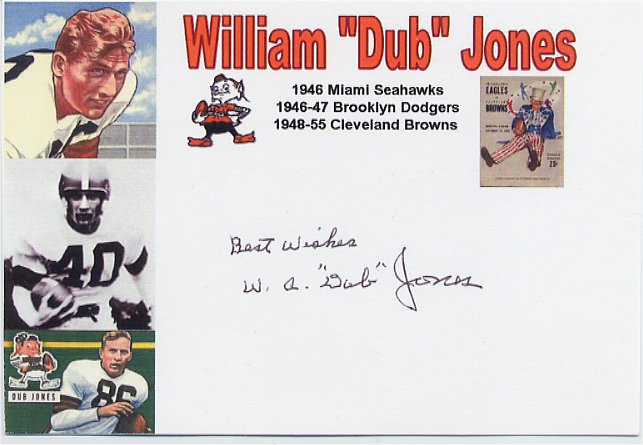 William "Dub" Jones
1946 Miami Seahawks
1946-47 Brooklyn Dodgers
1948-55 Cleveland Browns
EAGLES
BROWNS
25¢
Best Wishes
W. A. "Dub" Jones
40
DUB JONES
86